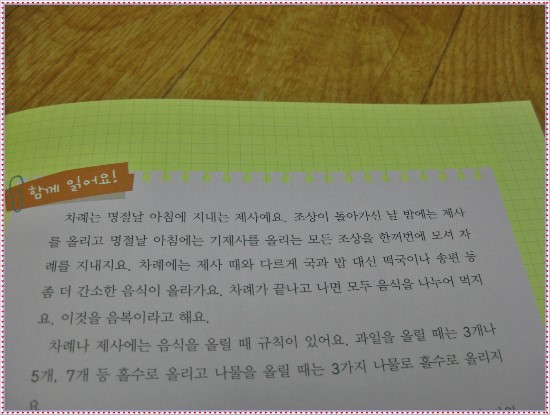 함께 읽어요!
차례는 명절날 아침에 지내는 제사예요. 조상이 돌아가신 날 밤에는 제사
를 올리고 명절날 아침에는 기제사를 올리는 모든 조상을 한꺼번에 모셔 차
례를 지내지요. 차례에는 제사 때와 다르게 국과 밥 대신 떡국이나 송편 등
좀 더 간소한 음식이 올라가요. 차례가 끝나고 나면 모두 음식을 나누어 먹지
요. 이것을 음복이라고 해요.
차례나 제사에는 음식을 올릴 때 규칙이 있어요. 과일을 올릴 때는 3개나
5개, 7개 등 홀수로 올리고 나물을 올릴 때는 3가지 나물로 홀수로 올리지